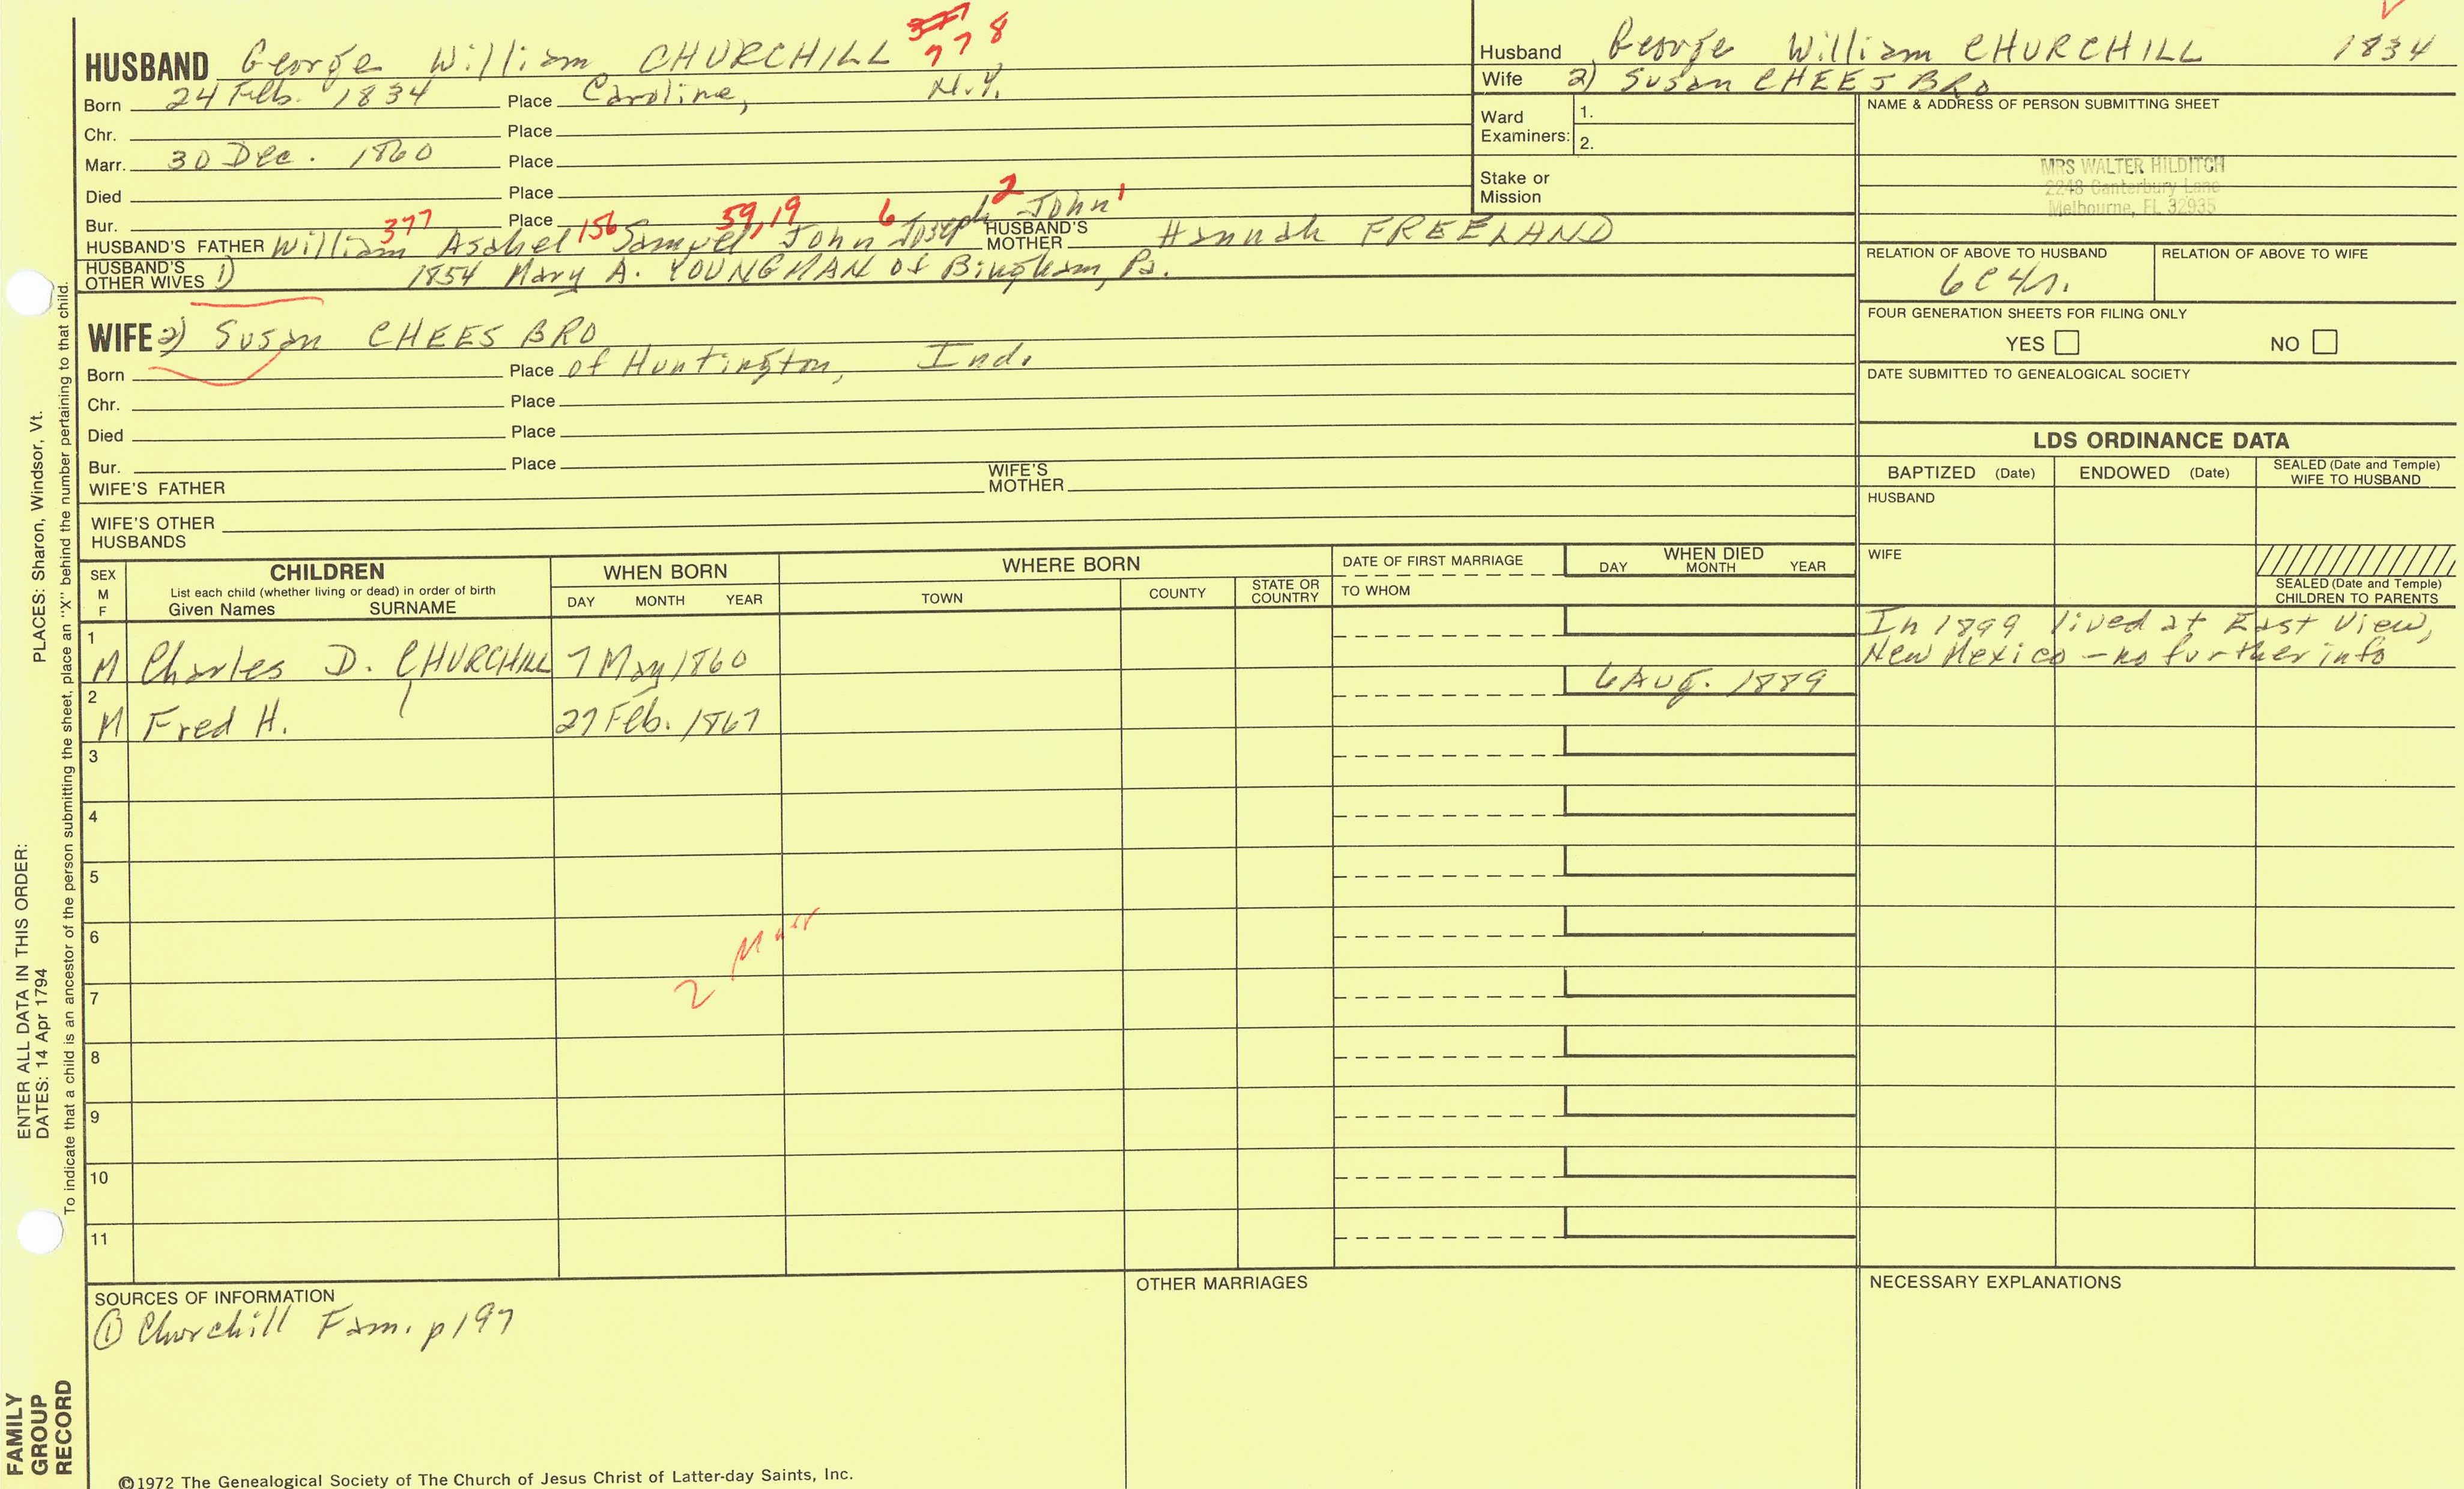 HUSBAND George William CHURCHILL 377 778
Born 24 Feb. 1834 Place Caroline, N.Y.
Chr. Place
Marr. 30 Dec. 1860 Place
Died Place
Bur. Place
HUSBAND'S FATHER William 377 Asahel 156 Samuel 59,19 John 6 Joseph 2 John 1 HUSBAND'S MOTHER Hannah FREELAND
HUSBAND'S OTHER WIVES 1) 1854 Mary A. YOUNGMAN of Bingham, Pa.
WIFE 2) Susan CHEESBRO
Born Place of Huntington, Ind.
Chr. Place
Died Place
Bur. Place
WIFE'S FATHER WIFE'S MOTHER
WIFE'S OTHER HUSBANDS
Husband George William CHURCHILL 1834
Wife 2) Susan CHEESBRO
Ward Examiners: 1.
2.
Stake or Mission
NAME & ADDRESS OF PERSON SUBMITTING SHEET
MRS WALTER HILDITCH
2248 Canterbury Lane
Melbourne, FL 32935
RELATION OF ABOVE TO HUSBAND RELATION OF ABOVE TO WIFE
6C4r.
FOUR GENERATION SHEETS FOR FILING ONLY
YES NO
DATE SUBMITTED TO GENEALOGICAL SOCIETY
LDS ORDINANCE DATA
BAPTIZED (Date) ENDOWED (Date) SEALED (Date and Temple) WIFE TO HUSBAND
HUSBAND
WIFE
SEALED (Date and Temple) CHILDREN TO PARENTS
SEX M F
CHILDREN
List each child (whether living or dead) in order of birth
Given Names SURNAME
WHEN BORN
DAY MONTH YEAR
WHERE BORN
TOWN COUNTY STATE OR COUNTRY
DATE OF FIRST MARRIAGE
TO WHOM
WHEN DIED
DAY MONTH YEAR
1 M Charles D. CHURCHILL 7 May 1860 In 1899 lived at East View,
New Mexico - no further info
2 M Fred H. 27 Feb. 1867 6 Aug. 1889
3
4
5
6
7
8
9
10
11
2 Marr
SOURCES OF INFORMATION
① Churchill Fam. p197
OTHER MARRIAGES
NECESSARY EXPLANATIONS
©1972 The Genealogical Society of The Church of Jesus Christ of Latter-day Saints, Inc.
ENTER ALL DATA IN THIS ORDER:
DATES: 14 Apr 1794 PLACES: Sharon, Windsor, Vt.
To indicate that a child is an ancestor of the person submitting the sheet, place an "X" behind the number pertaining to that child.
FAMILY
GROUP
RECORD